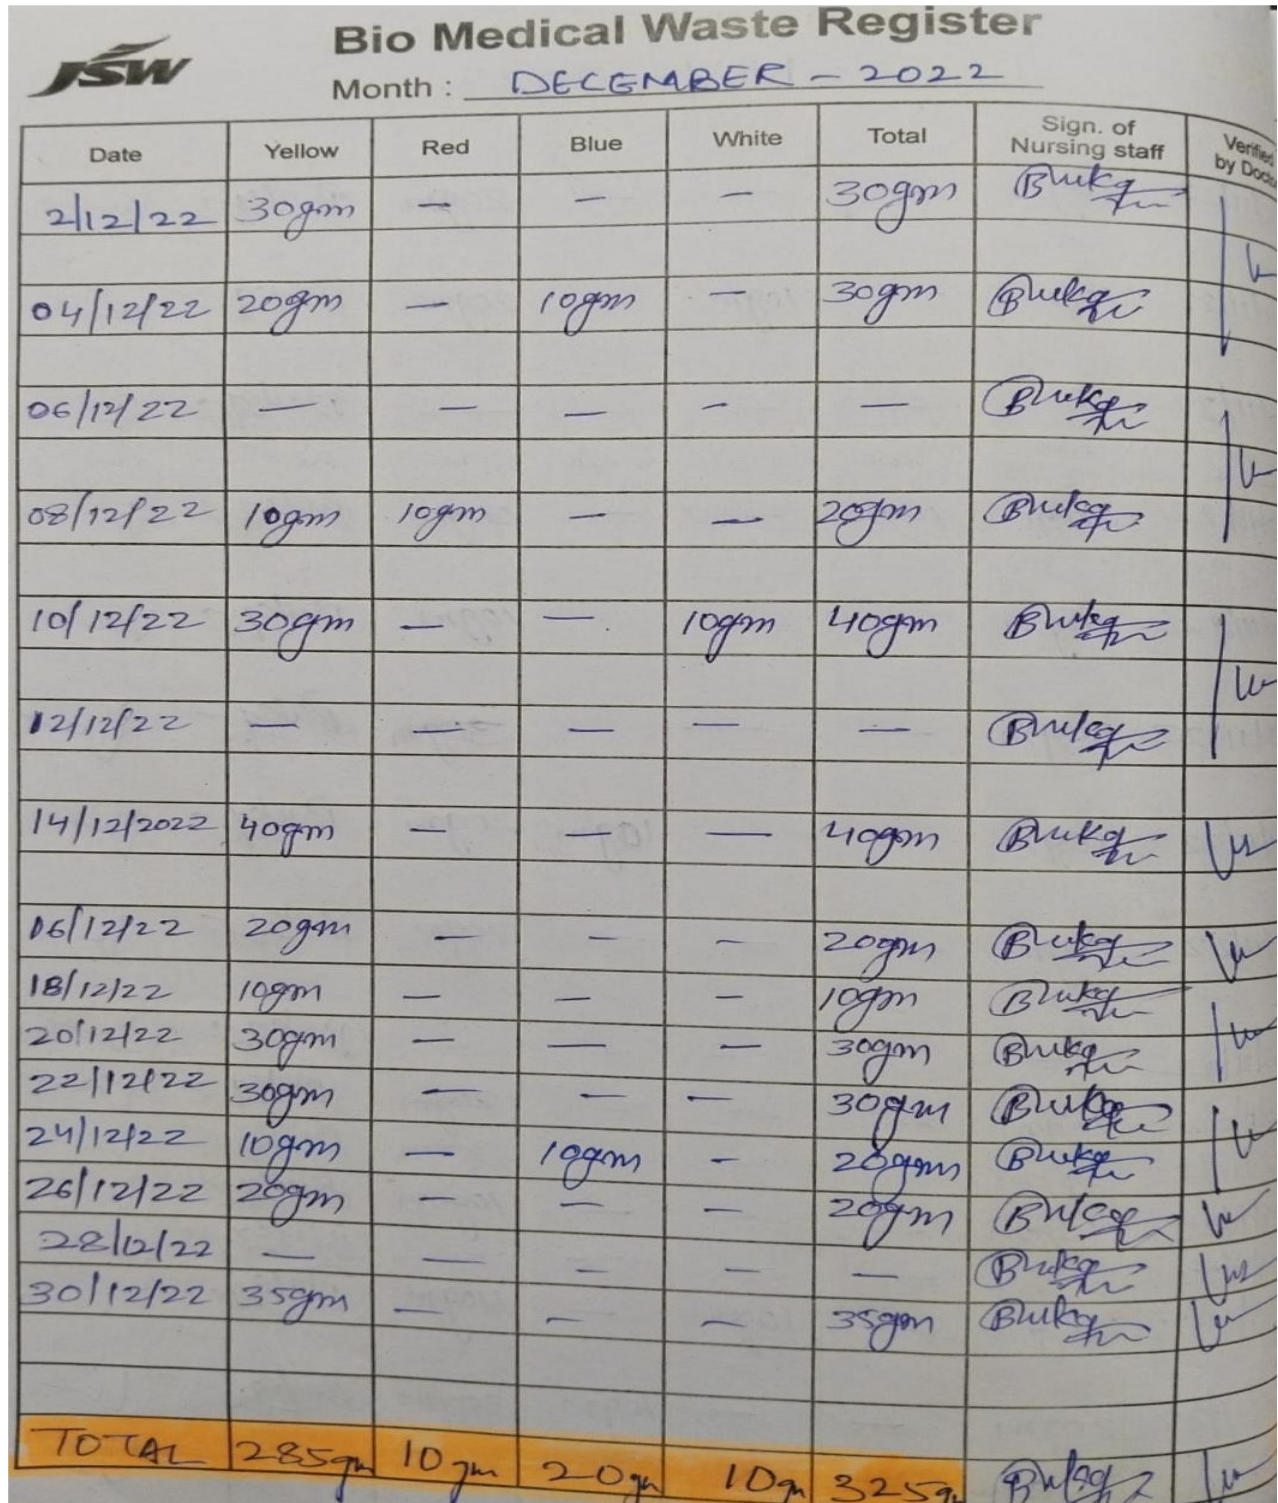 JSW
Bio Medical Waste Register
Month : DECEMBER - 2022
Date Yellow Red Blue White Total Sign. of Nursing staff Verified by
2/12/22 30gm — — — 30gm
04/12/22 20gm — 10gm — 30gm
06/12/22 — — — — —
08/12/22 10gm 10gm — — 20gm
10/12/22 30gm — — 10gm 40gm
12/12/22 — — — — —
14/12/2022 40gm — — — 40gm
16/12/22 20gm — — — 20gm
18/12/22 10gm — — — 10gm
20/12/22 30gm — — — 30gm
22/12/22 30gm — — — 30gm
24/12/22 10gm — 10gm — 20gm
26/12/22 20gm — — — 20gm
28/12/22 — — — — —
30/12/22 35gm — — — 35gm
TOTAL 285gm 10gm 20gm 10gm 325gm